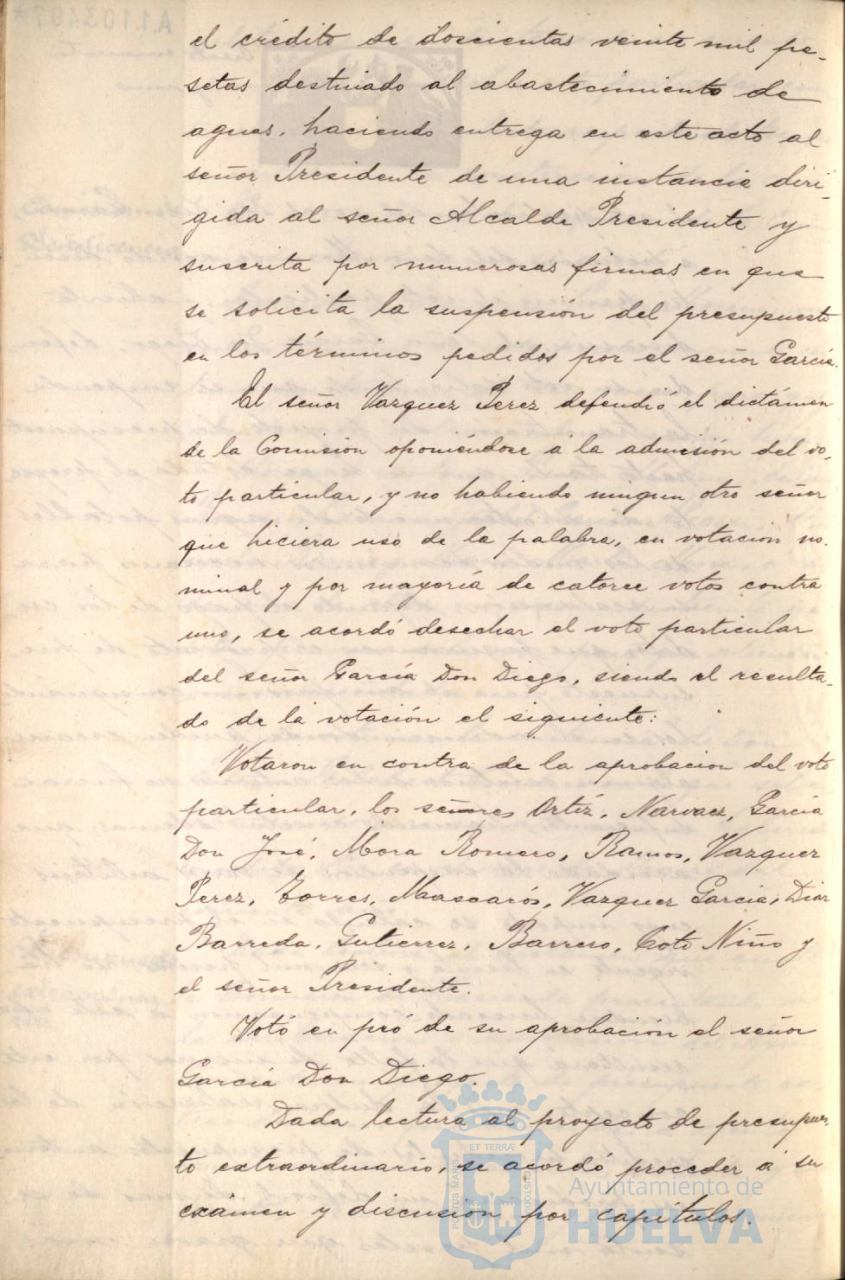 el crédito de doscientas veinte mil pe-
setas destinado al abastecimiento de
aguas, haciendo entrega en este acto al
señor Presidente de una instancia diri-
gida al señor Alcalde Presidente y
suscrita por numerosas firmas en que
se solicita la suspensión del presupuesto
en los términos pedidos por el señor García.
El señor Vazquez Perez defendió el dictámen
de la Comisión oponiéndose á la admisión del vo-
to particular, y no habiendo ningun otro señor
que hiciera uso de la palabra, en votacion no-
minal y por mayoría de catorce votos contra
uno, se acordó desechar el voto particular
del señor García Don Diego, siendo el resulta-
do de la votación el siguiente:
Votaron en contra de la aprobacion del voto
particular, los señores Ortíz, Narvaez, García
Don José, Mora Romero, Ramos, Vazquez
Perez, Torres, Mascarós, Vazquez García, Diaz
Barreda, Gutierrez, Barrero, Coto Niño y
el señor Presidente.
Votó en pró de su aprobación el señor
García Don Diego.
Dada lectura al proyecto de presupues-
to extraordinario, se acordó proceder á su
exámen y discusión por capítulos.
ET TERRÆ
Ayuntamiento de
HUELVA